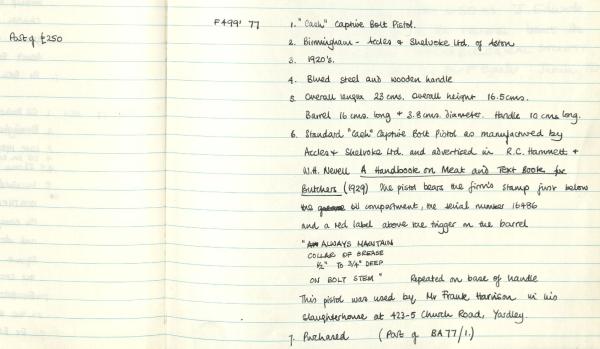 Part of £250
F499' 77
1. "Cash" Captive Bolt Pistol.
2. Birmingham - Accles & Shelvoke Ltd. of Aston
3. 1920's.
4. Blued steel and wooden handle
5. Overall length 23 cms. Overall height 16.5 cms.
Barrel 16 cms. long & 3.8 cms. diameter. Handle 10 cms long.
6. Standard "Cash" Captive Bolt Pistol as manufactured by
Accles & Shelvoke Ltd. and advertised in R.C. Hammett &
W.H. Nevell A Handbook on Meat and Text Book for
Butchers (1929) The pistol bears the firm's stamp just below
the grease oil compartment, the serial number 16486
and a red label above the trigger on the barrel
" ALWAYS MAINTAIN
COLLAR OF GREASE
1/2" TO 3/4" DEEP
ON BOLT STEM " Repeated on base of handle
This pistol was used by Mr Frank Harrison in his
slaughterhouse at 423-5 Church Road, Yardley.
7. Purchased (Part of BA77/1.)